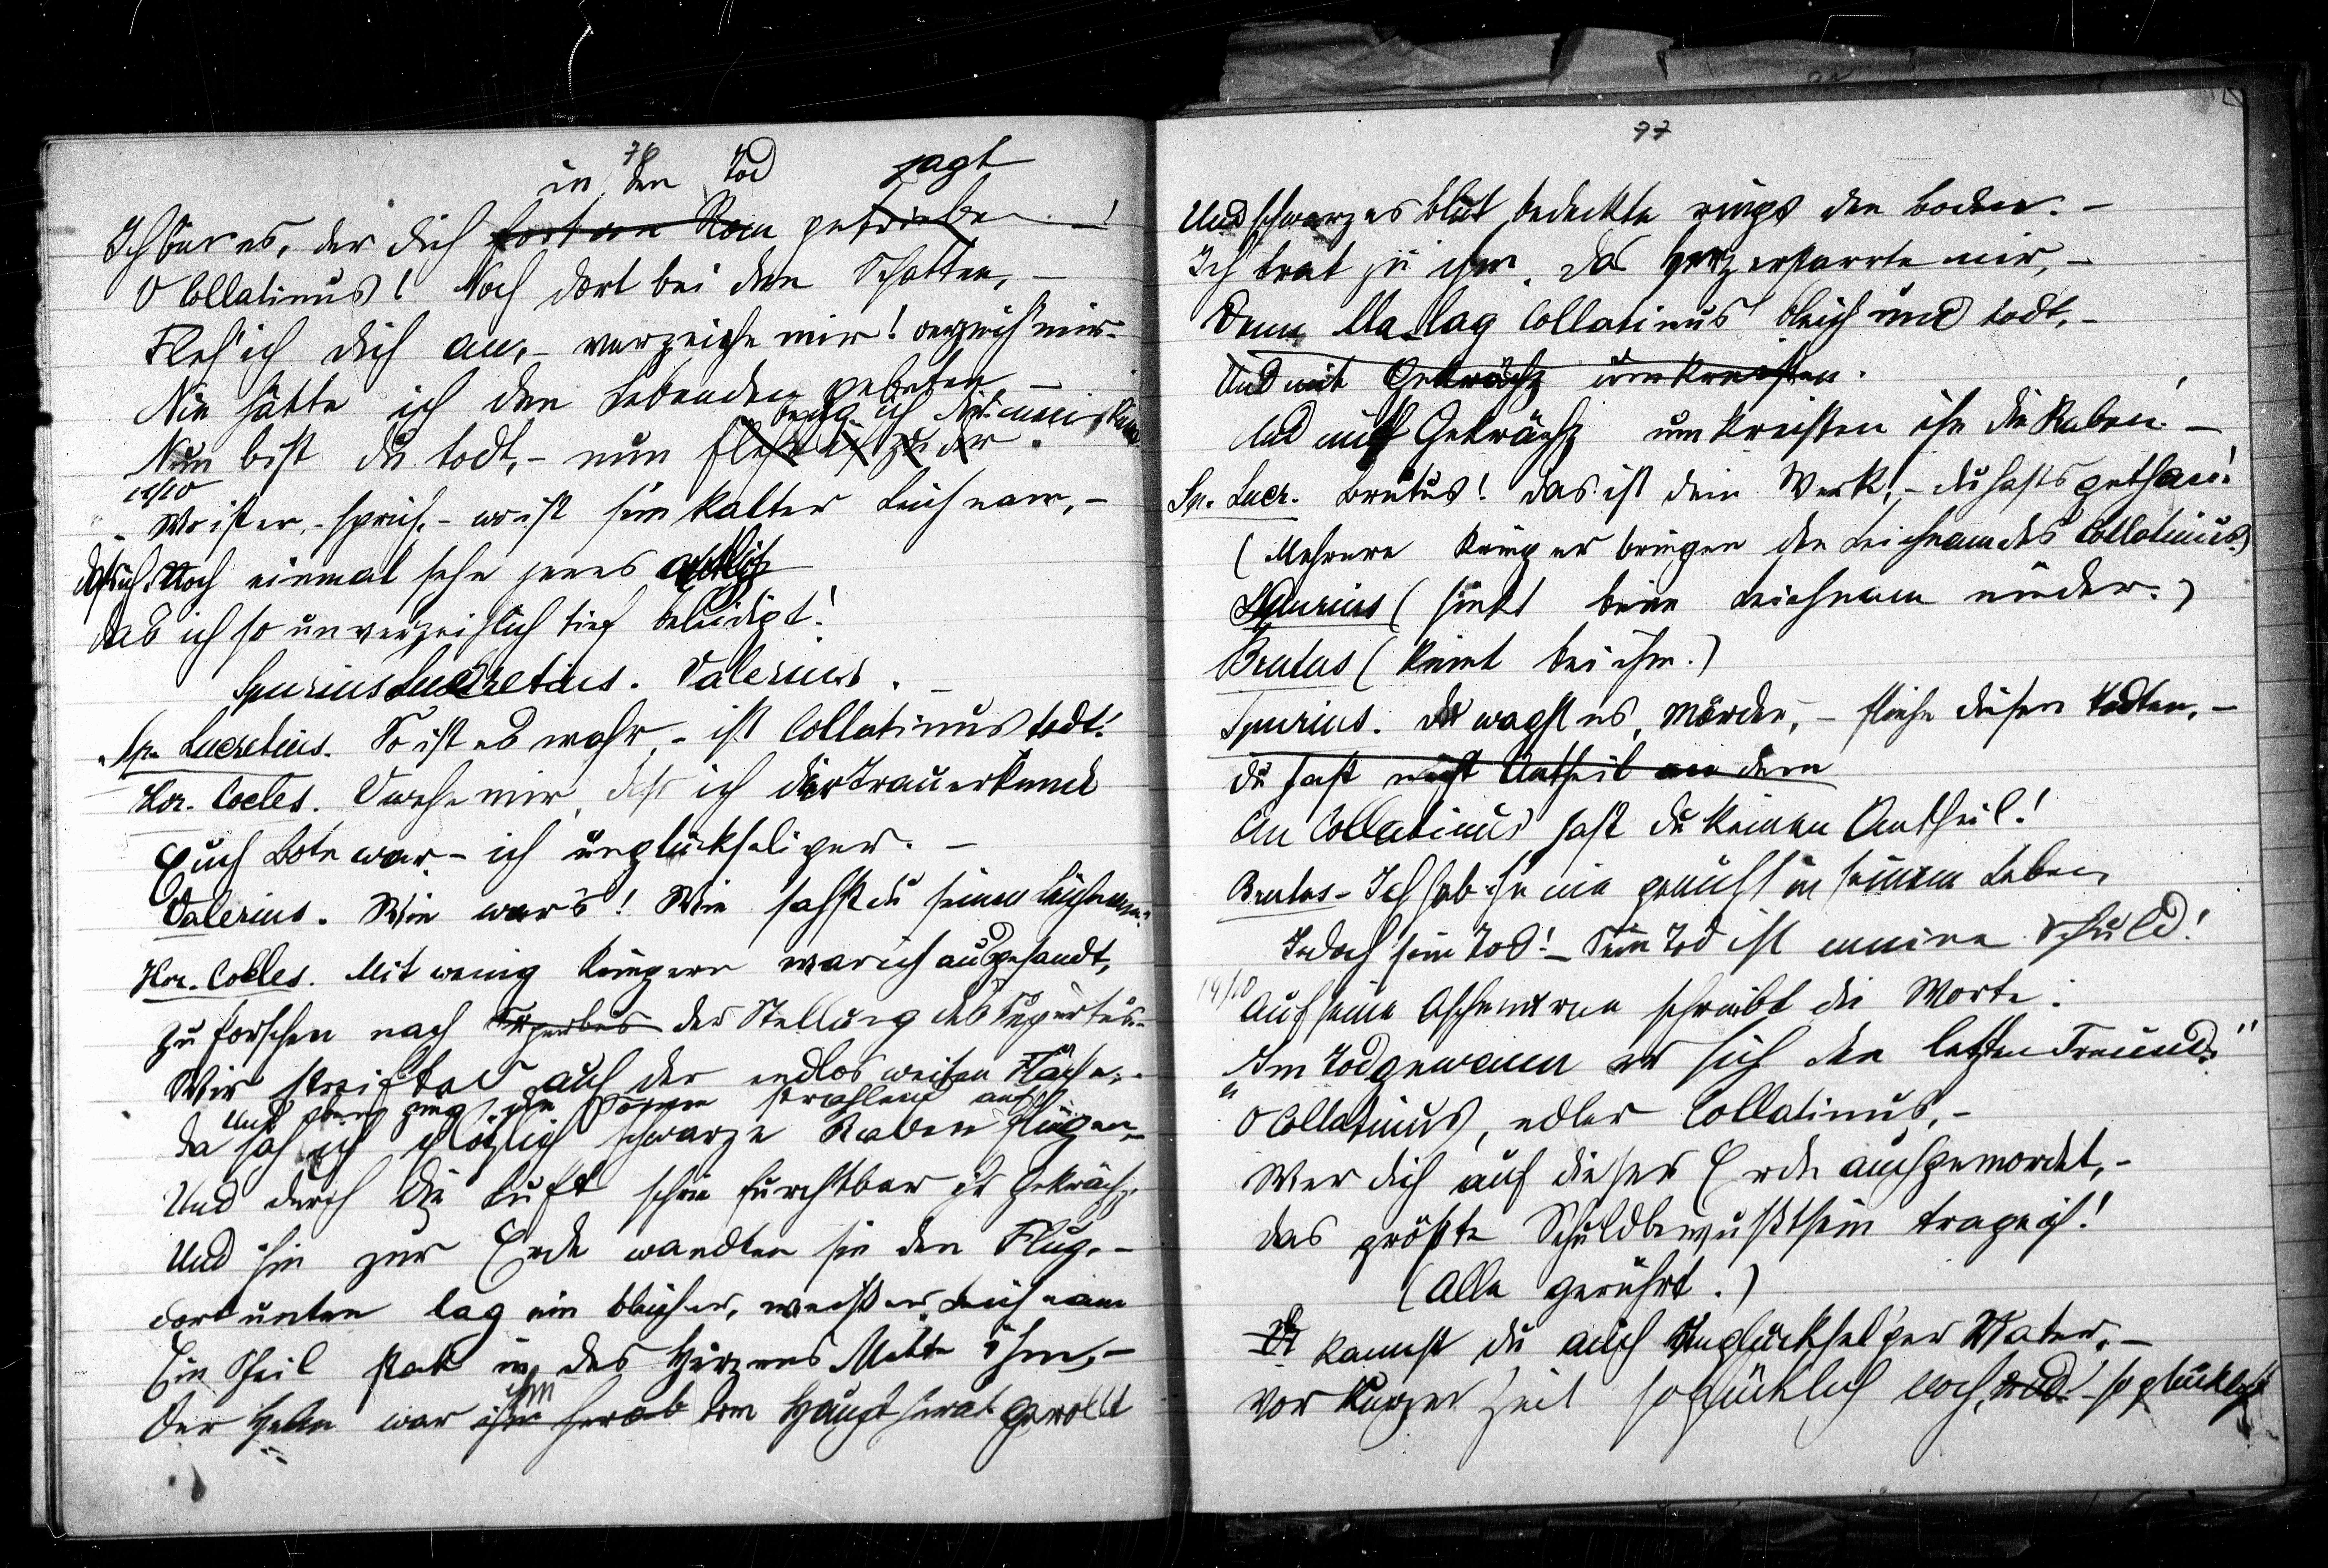 76
in den Tod jagt
Ich bin es, der dich fort von Rom getrieben !
O Collatinus! Noch dort bei den Schatten, –
Fleh' ich dich an, – verzeihe mir! verzeih' mir –
Nie hätte ich den Lebenden gebeten, –
beug ich dir mein Knie
Nun bist du todt, – nun flehe ich zu dir.
Wo ist er, – sprich, – wo ist sein kalter Leichnam, –
daß ich Noch einmal sehe jenes Antlitz
das ich so unverzeihlich tief beleidigt!
Spurius Lucretius. Valerius. –
Sp. Lucretius. So ist es wahr, – ist Collatinus todt!
Hor. Cocles. O wehe mir, daß ich der Trauerkunde
Euch Bote war – ich unglückseliger. –
Valerius. Wie war's! Wie sahst du seinen Leichnam?
Hor. Cocles. Mit wenig Kriegern war ich ausgesandt,
zu forschen nach Superbus der Stellung des Superbus. –
Wir streiften auf der endlos weiten Fläche, –
Und ging die Sonne strahlend auf
da sah ich plötzlich schwarze Raben fliegen, –
Und durch die Luft schrie furchtbar ihr Gekrächz,
Und hin zur Erde wandten sie den Flug, –
dort unten lag ein bleicher, weißer Leichnam
Ein Pfeil stak in des Herzens Mitte ihm, –
ihm
Der Helm war ihm herab vom Haupt herab gerollt
77
Und schwarzes Blut bedeckte rings den Boden. –
Ich trat zu ihm, das Herz erstarrte mir, –
Denn da lag Collatinus bleich und todt, –
Und mit Gekrächz umkreisten.
Und mit Gekrächz umkreisten ihn die Raben! –
Sp. Lucr. Brutus! das ist dein Werk, – du hasts gethan!
(Mehrere Krieger bringen den Leichnam des Collatinus.)
Spurius (sinkt beim Leichnam nieder.)
Brutus (kniet bei ihm.)
Spurius. du wagst es, Mörder, – fliehe diesen Todten, –
du hast nicht Antheil an dem
An Collatinus hast du keinen Antheil!
Brutus – Ich hab ihn nie gemocht in seinem Leben
Jedoch sein Tod! – Sein Tod ist meine Schuld!
14/10
Auf seine Aschenurne schreibt die Worte:
"Im Tod gewann er sich den letzten Freund."
O Collatinus, edler Collatinus, –
Wer dich auf dieser Erde auch gemordet, –
das größte Schuldbewußtsein trage ich!
(Alle gerührt.)
kannst du auch unglücksel'ger Vater, –
Vor kurzer Zeit so glücklich noch, und – so glücklich